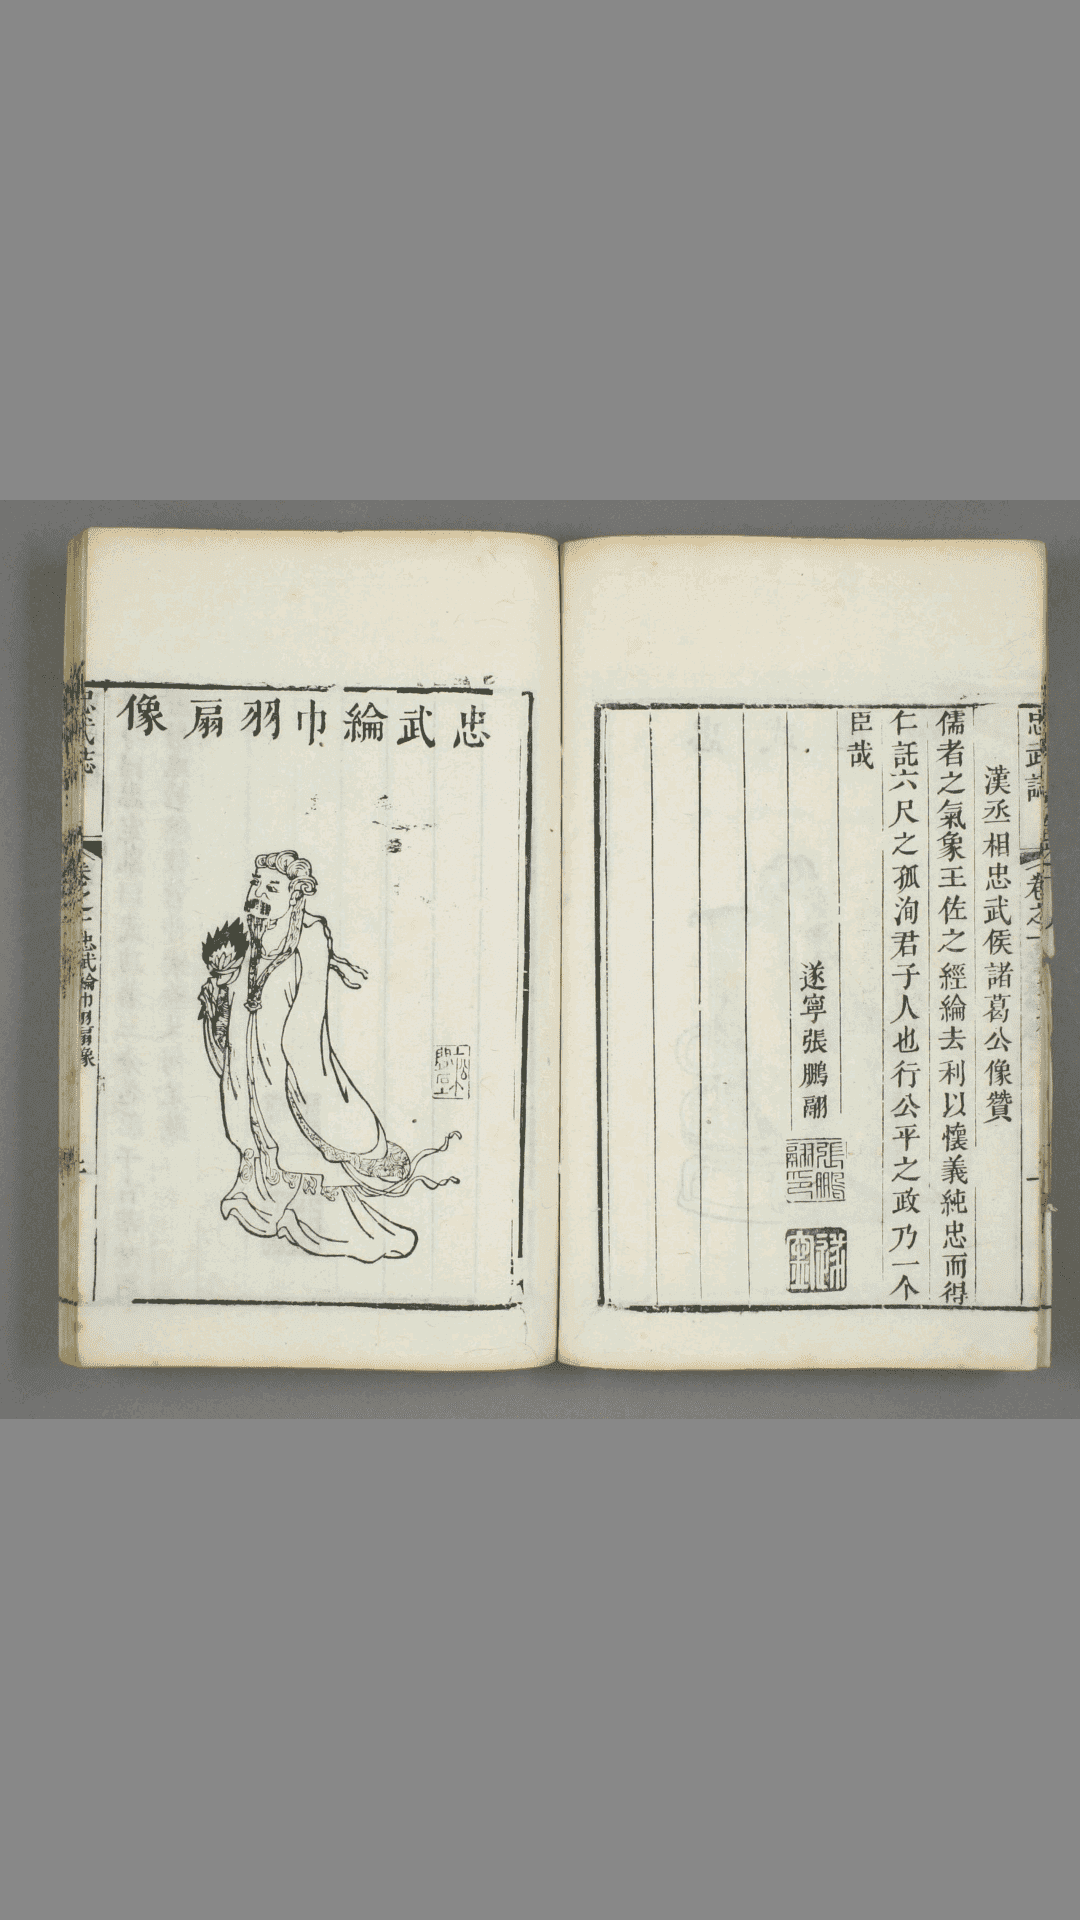 忠武誌
卷之一
漢丞相忠武侯諸葛公像贊
儒者之氣象王佐之經綸去利以懷義純忠而得
仁託六尺之孤洵君子人也行公平之政乃一个
臣哉
遂寧張鵬翮
張鵬
翮印
忠武綸巾羽扇像
忠武誌
卷之一
忠武綸巾羽扇像
七